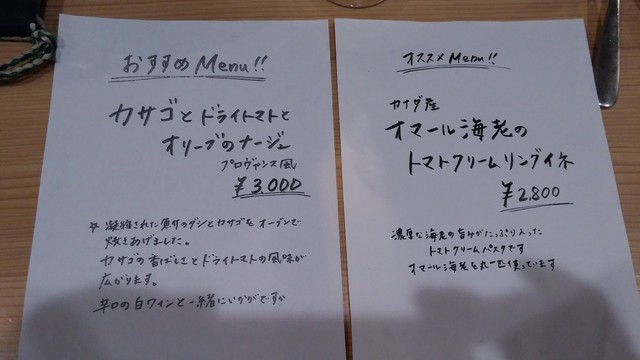 おすすめ Menu!!
カサゴとドライトマトと
オリーブのナージュ
プロヴァンス風
¥3,000
☆ 凝縮された魚介のダシとカサゴをオーブンで
炊きあげました。
カサゴの香ばしさとドライトマトの風味が
広がります。
辛口の白ワインと一緒にいかがですか
オススメ Menu!!
カナダ産
オマール海老の
トマトクリームリングイネ
¥2,800
濃厚な海老の旨みがたっぷり入った
トマトクリームパスタです
オマール海老を丸一匹使っています